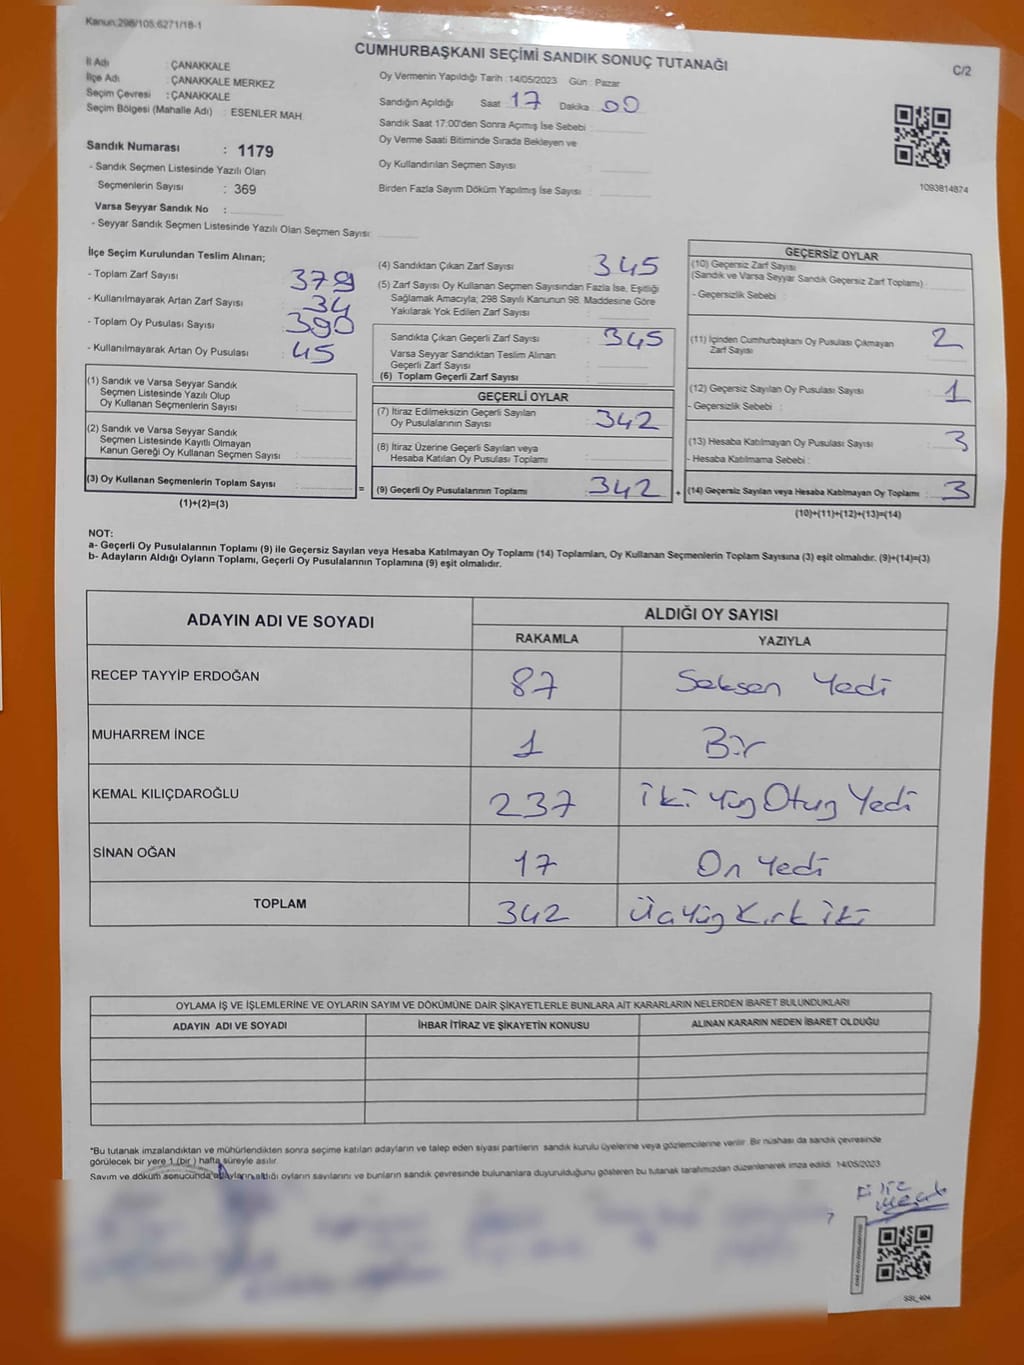 Kanun:298/105.6271/18-1
CUMHURBAŞKANI SEÇİMİ SANDIK SONUÇ TUTANAĞI
C/2
İl Adı : ÇANAKKALE
İlçe Adı : ÇANAKKALE MERKEZ
Seçim Çevresi : ÇANAKKALE
Seçim Bölgesi (Mahalle Adı) : ESENLER MAH.
Sandık Numarası : 1179
- Sandık Seçmen Listesinde Yazılı Olan
Seçmenlerin Sayısı : 369
Varsa Seyyar Sandık No :
- Seyyar Sandık Seçmen Listesinde Yazılı Olan Seçmen Sayısı:
Oy Vermenin Yapıldığı Tarih : 14/05/2023 Gün : Pazar
Sandığın Açıldığı Saat : 17 Dakika : 00
Sandık Saat 17:00'den Sonra Açımış İse Sebebi :
Oy Verme Saati Bitiminde Sırada Bekleyen ve
Oy Kullandırılan Seçmen Sayısı :
Birden Fazla Sayım Döküm Yapılmış İse Sayısı :
1093814874
İlçe Seçim Kurulundan Teslim Alınan;
- Toplam Zarf Sayısı : 379
- Kullanılmayarak Artan Zarf Sayısı : 34
- Toplam Oy Pusulası Sayısı : 390
- Kullanılmayarak Artan Oy Pusulası : 45
(1) Sandık ve Varsa Seyyar Sandık
Seçmen Listesinde Yazılı Olup
Oy Kullanan Seçmenlerin Sayısı :
(2) Sandık ve Varsa Seyyar Sandık
Seçmen Listesinde Kayıtlı Olmayan
Kanun Gereği Oy Kullanan Seçmen Sayısı :
(3) Oy Kullanan Seçmenlerin Toplam Sayısı :
(1)+(2)=(3)
(4) Sandıktan Çıkan Zarf Sayısı : 345
(5) Zarf Sayısı Oy Kullanan Seçmen Sayısından Fazla İse, Eşitliği
Sağlamak Amacıyla; 298 Sayılı Kanunun 98. Maddesine Göre
Yakılarak Yok Edilen Zarf Sayısı :
Sandıkta Çıkan Geçerli Zarf Sayısı : 345
Varsa Seyyar Sandıktan Teslim Alınan
Geçerli Zarf Sayısı :
(6) Toplam Geçerli Zarf Sayısı :
GEÇERLİ OYLAR
(7) İtiraz Edilmeksizin Geçerli Sayılan
Oy Pusulalarının Sayısı : 342
(8) İtiraz Üzerine Geçerli Sayılan veya
Hesaba Katılan Oy Pusulası Toplamı :
= (9) Geçerli Oy Pusulalarının Toplamı : 342 +
GEÇERSİZ OYLAR
(10) Geçersiz Zarf Sayısı
(Sandık ve Varsa Seyyar Sandık Geçersiz Zarf Toplamı) :
- Geçersizlik Sebebi :
(11) İçinden Cumhurbaşkanı Oy Pusulası Çıkmayan
Zarf Sayısı : 2
(12) Geçersiz Sayılan Oy Pusulası Sayısı : 1
- Geçersizlik Sebebi :
(13) Hesaba Katılmayan Oy Pusulası Sayısı : 3
- Hesaba Katılmama Sebebi :
(14) Geçersiz Sayılan veya Hesaba Katılmayan Oy Toplamı : 3
(10)+(11)+(12)+(13)=(14)
NOT:
a- Geçerli Oy Pusulalarının Toplamı (9) ile Geçersiz Sayılan veya Hesaba Katılmayan Oy Toplamı (14) Toplamları, Oy Kullanan Seçmenlerin Toplam Sayısına (3) eşit olmalıdır. (9)+(14)=(3)
b- Adayların Aldığı Oyların Toplamı, Geçerli Oy Pusulalarının Toplamına (9) eşit olmalıdır.
ADAYIN ADI VE SOYADI
ALDIĞI OY SAYISI
RAKAMLA YAZIYLA
RECEP TAYYİP ERDOĞAN 87 Seksen Yedi
MUHARREM İNCE 1 Bir
KEMAL KILIÇDAROĞLU 237 iki yüz Otuz Yedi
SİNAN OĞAN 17 On yedi
TOPLAM 342 Üçyüz Kırk iki
OYLAMA İŞ VE İŞLEMLERİNE VE OYLARIN SAYIM VE DÖKÜMÜNE DAİR ŞİKAYETLERLE BUNLARA AİT KARARLARIN NELERDEN İBARET BULUNDUKLARI
ADAYIN ADI VE SOYADI İHBAR İTİRAZ VE ŞİKAYETİN KONUSU ALINAN KARARIN NEDEN İBARET OLDUĞU
*Bu tutanak imzalandıktan ve mühürlendikten sonra seçime katılan adayların ve talep eden siyasi partilerin sandık kurulu üyelerine veya gözlemcilerine verilir. Bir nüshası da sandık çevresinde
görülecek bir yere 1 (bir) hafta süreyle asılır.
Sayım ve döküm sonucunda adayların aldığı oyların sayılarını ve bunların sandık çevresinde bulunanlara duyurulduğunu gösteren bu tutanak tarafımızdan düzenlenerek imza edildi. 14/05/2023